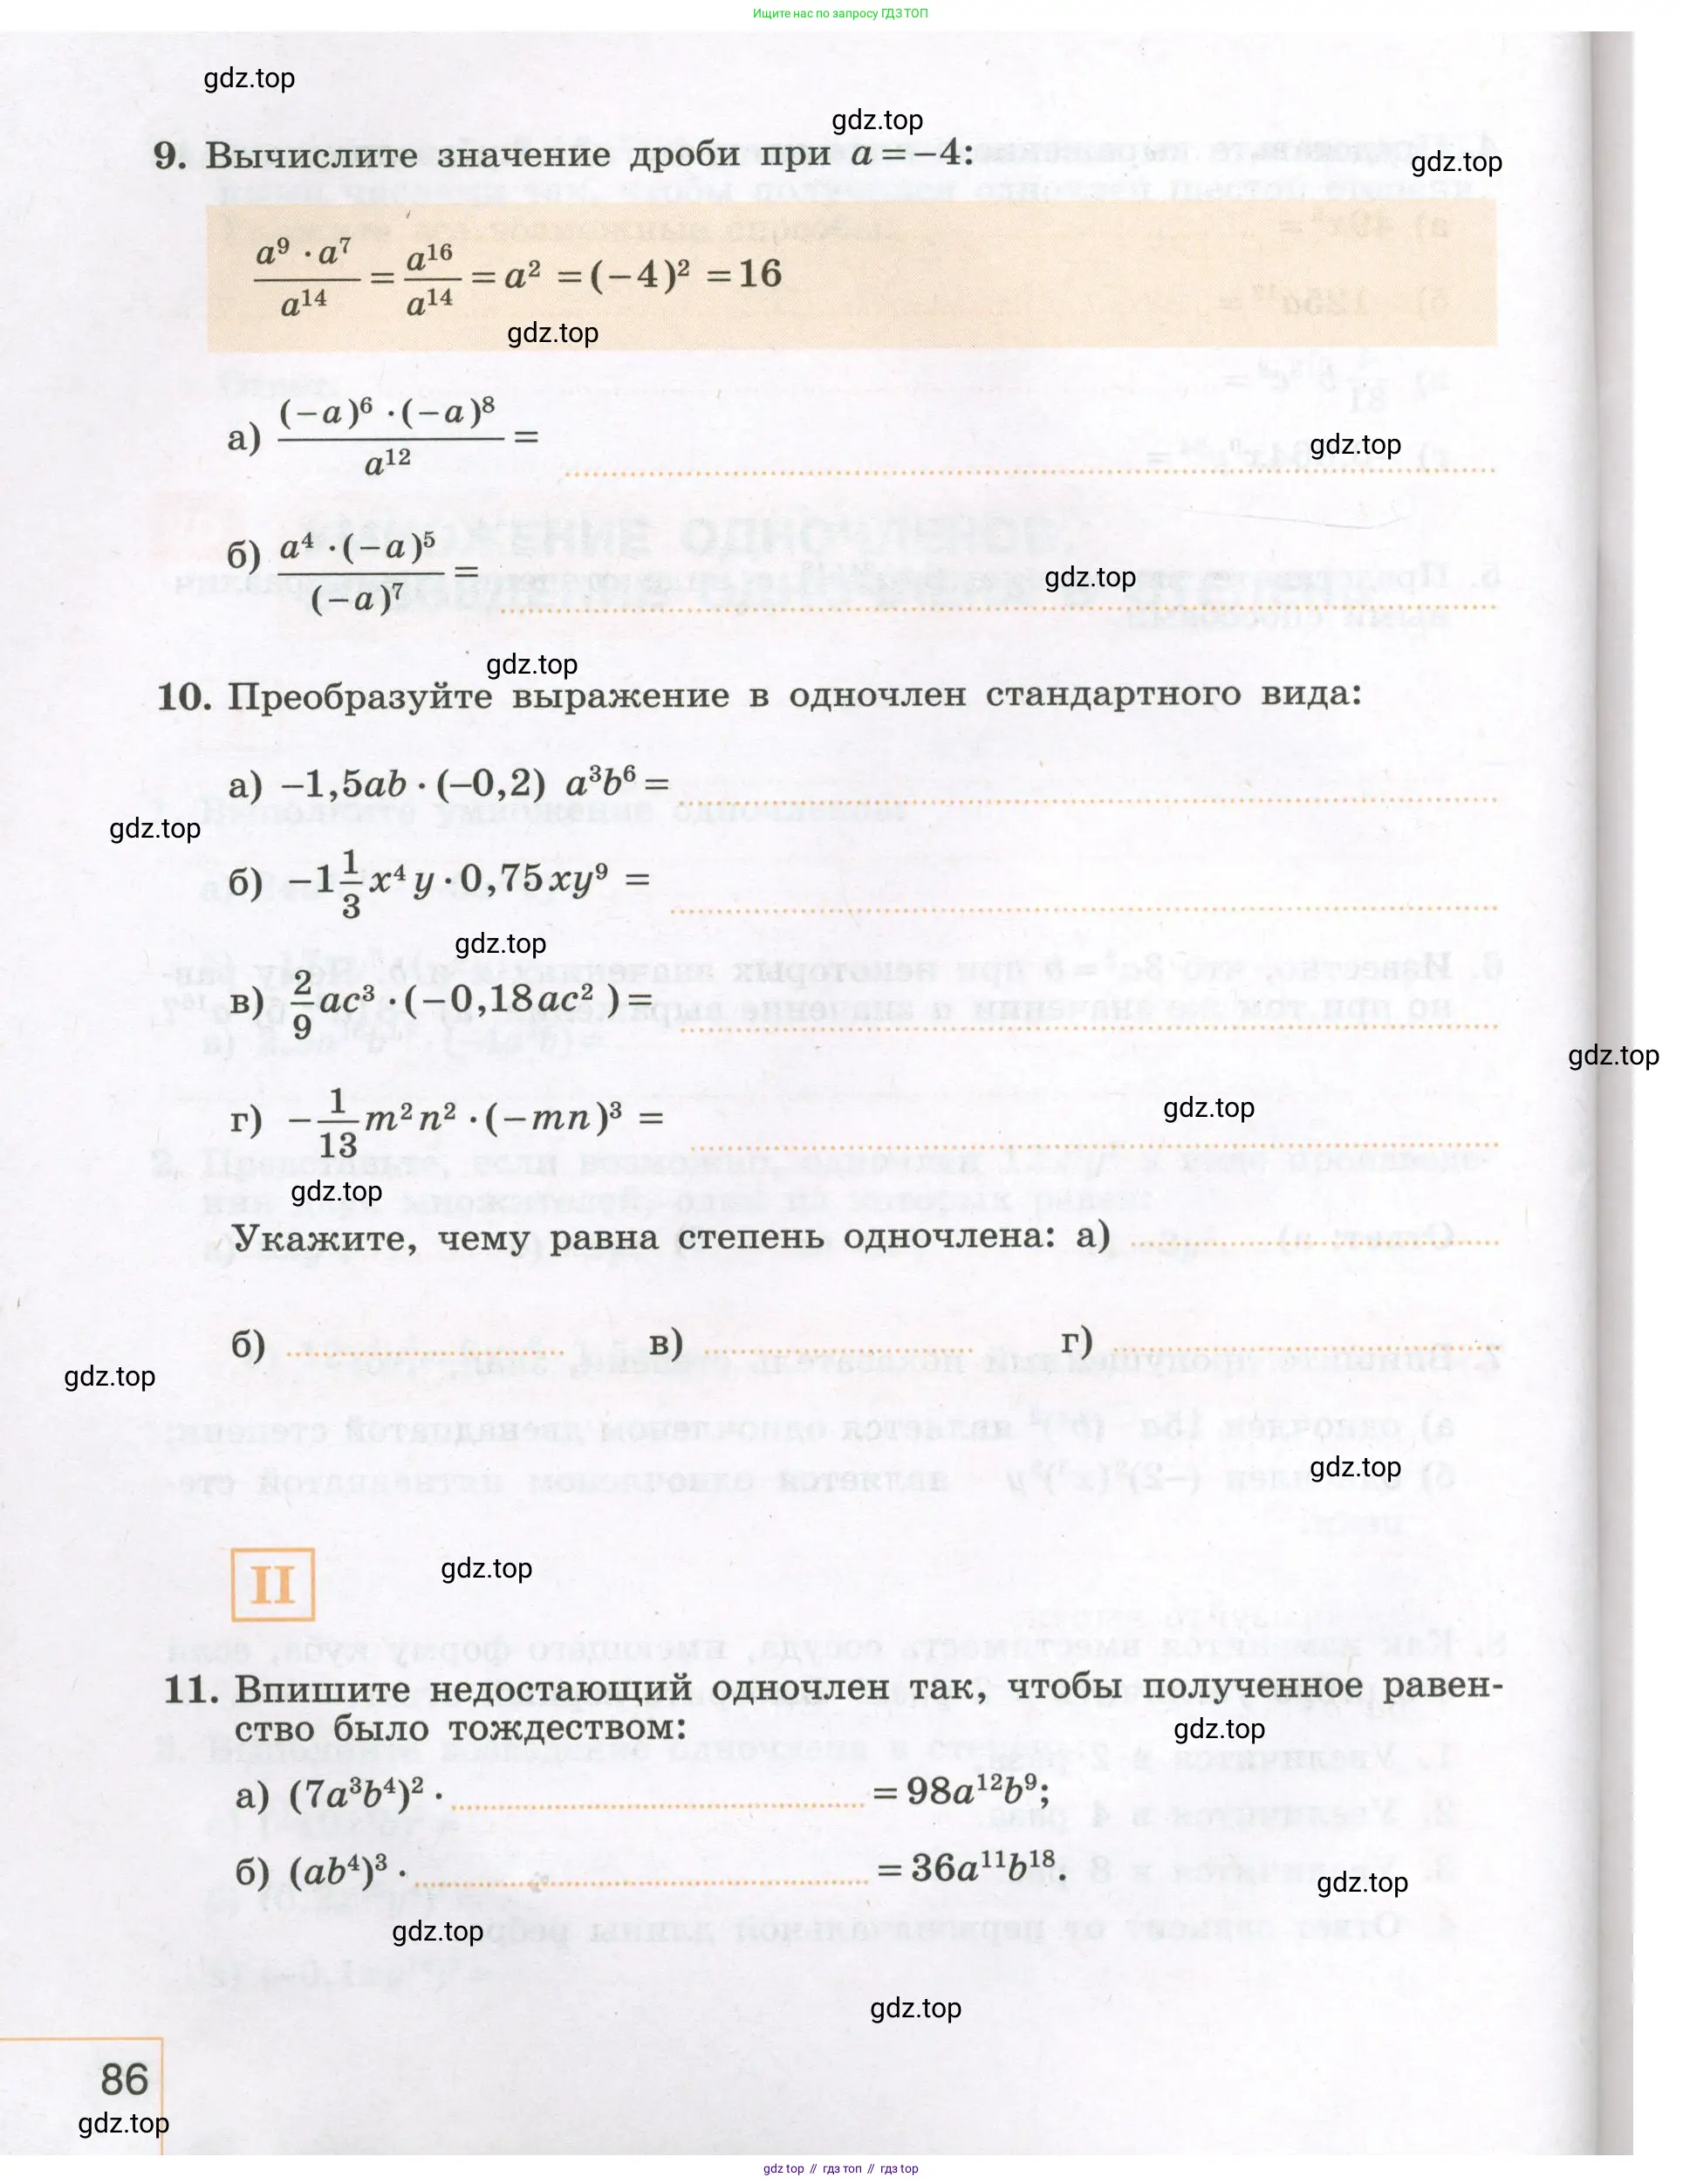 Ищите нас по запросу ГДЗ ТОП
gdz.top
gdz.top
9. Вычислите значение дроби при a = −4:
gdz.top
a⁹ · a⁷ / a¹⁴ = a¹⁶ / a¹⁴ = a² = (−4)² = 16
gdz.top
а) (−a)⁶ · (−a)⁸ / a¹² =
gdz.top
б) a⁴ · (−a)⁵ / (−a)⁷ =
gdz.top
gdz.top
10. Преобразуйте выражение в одночлен стандартного вида:
а) −1,5ab · (−0,2) a³b⁶ =
gdz.top
б) −1 1/3 x⁴y · 0,75xy⁹ =
gdz.top
в) 2/9 ac³ · (−0,18ac²) =
gdz.top
г) − 1/13 m²n² · (−mn)³ =
gdz.top
gdz.top
Укажите, чему равна степень одночлена: а)
б) в) г)
gdz.top
gdz.top
II
gdz.top
11. Впишите недостающий одночлен так, чтобы полученное равен-
ство было тождеством:
gdz.top
а) (7a³b⁴)² · = 98a¹²b⁹;
б) (ab⁴)³ · = 36a¹¹b¹⁸.
gdz.top
gdz.top
gdz.top
86
gdz.top
gdz top // гдз топ // gdz top